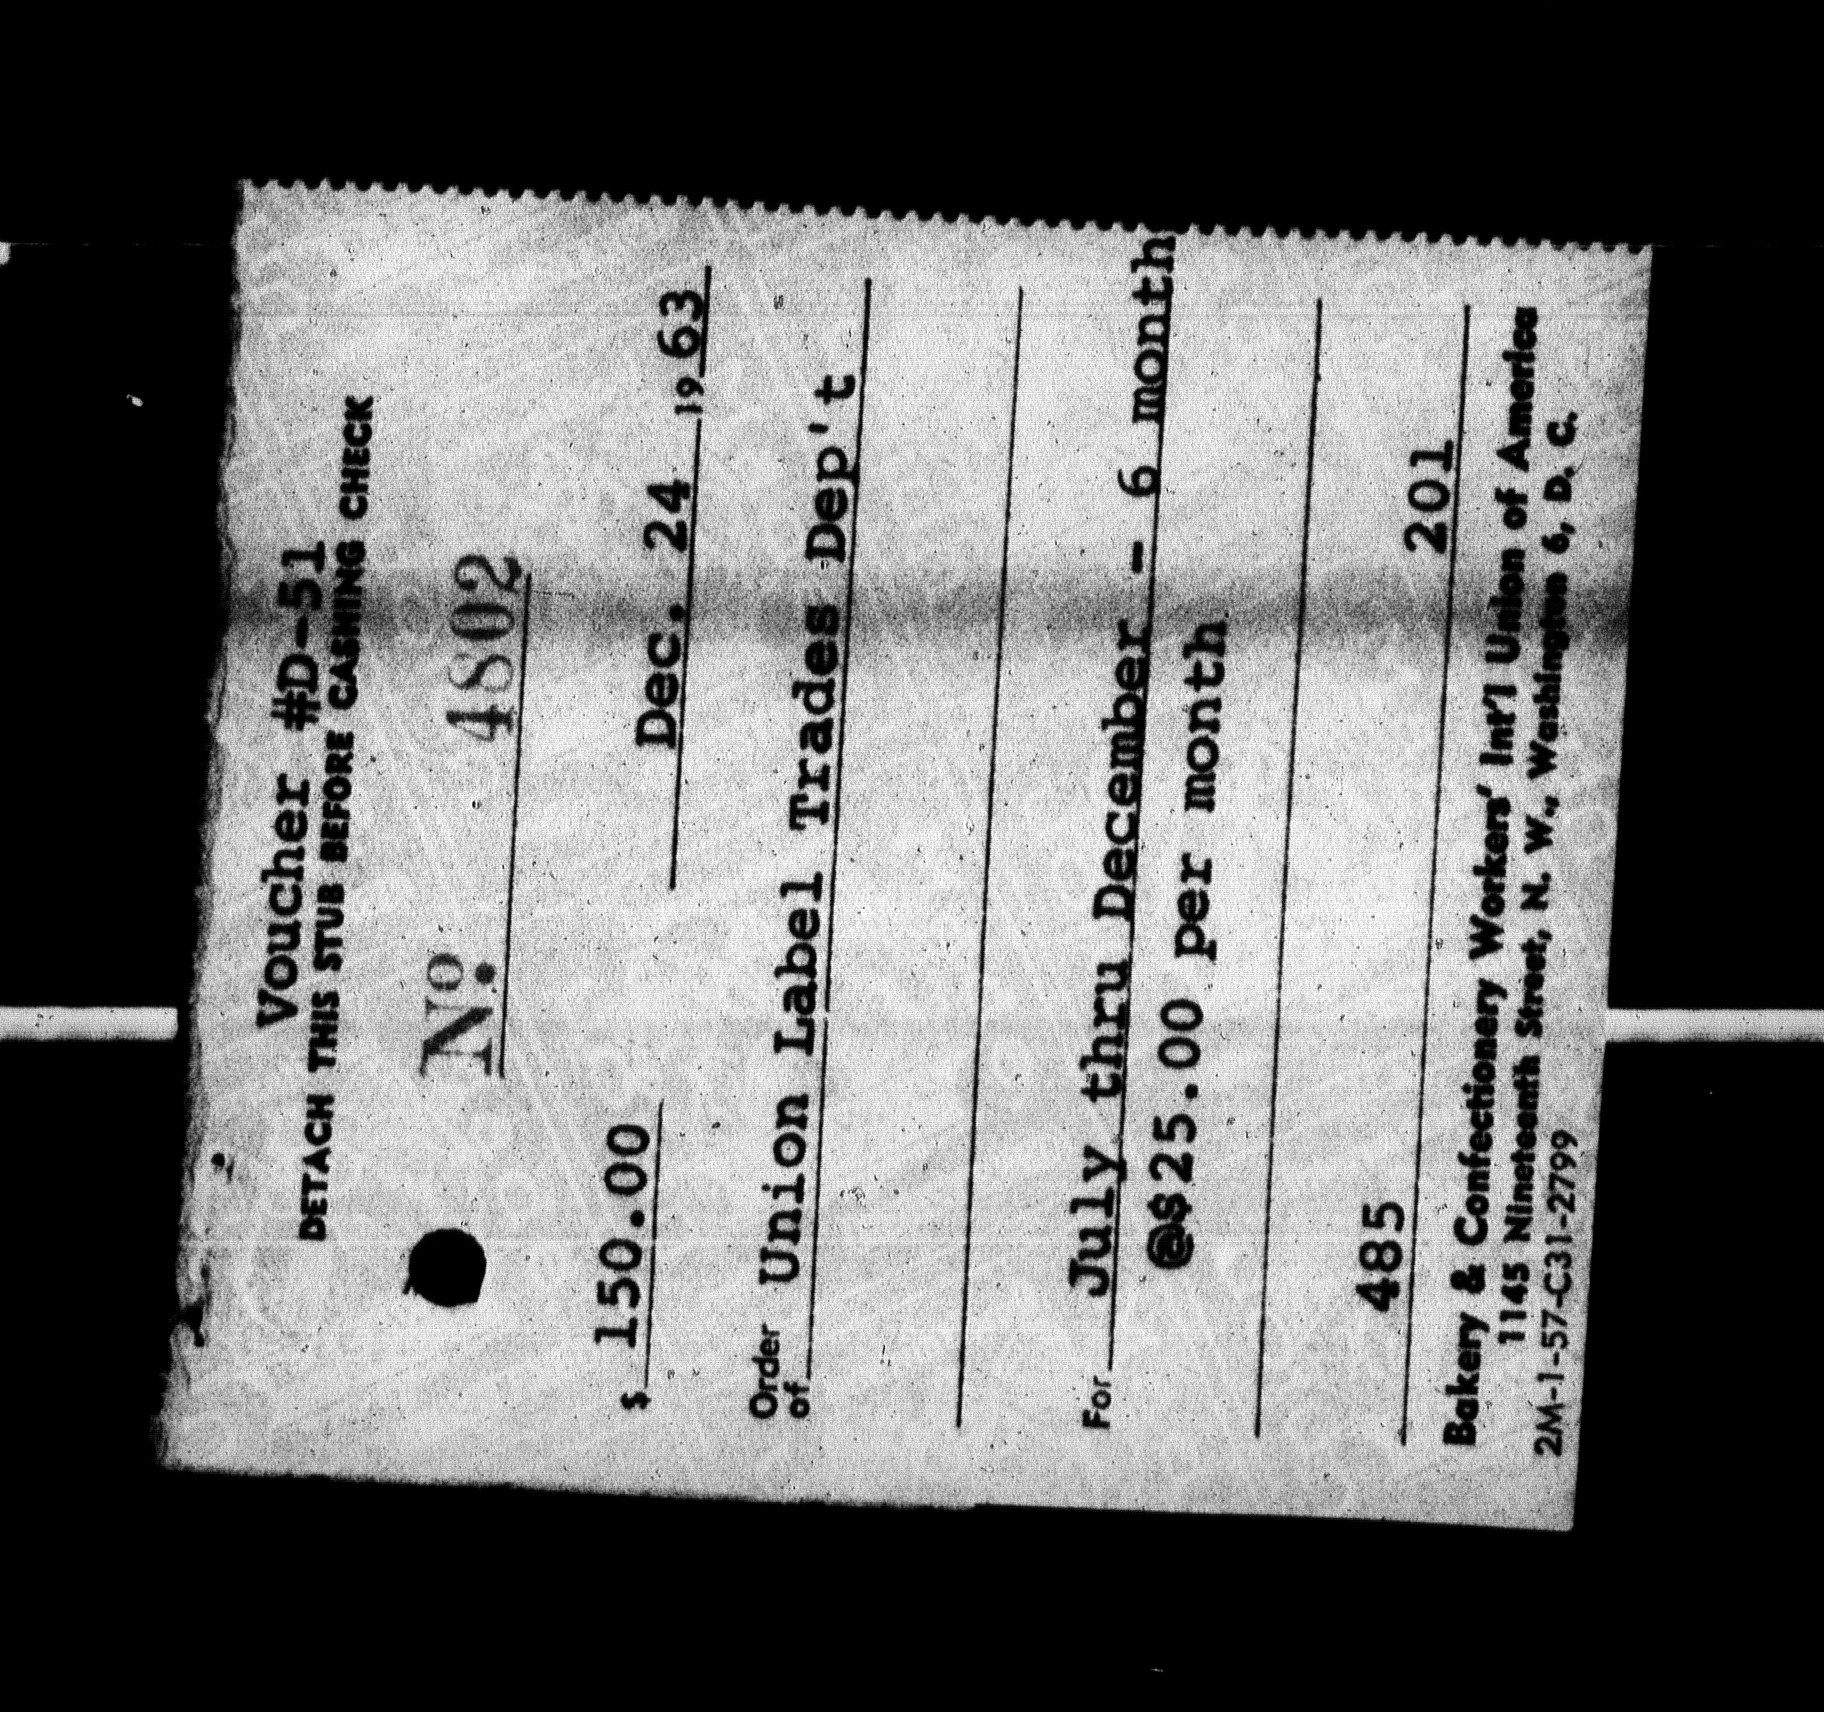 Voucher #D-51
DETACH THIS STUB BEFORE CASHING CHECK
No. 4802
$ 150.00 Dec. 24 1963
Order of Union Label Trades Dep't
For July thru December - 6 month
@$25.00 per month
485 201
Bakery & Confectionery Workers' Int'l Union of America
1145 Nineteenth Street, N. W., Washington 6, D. C.
2M-1-57-C31-2799